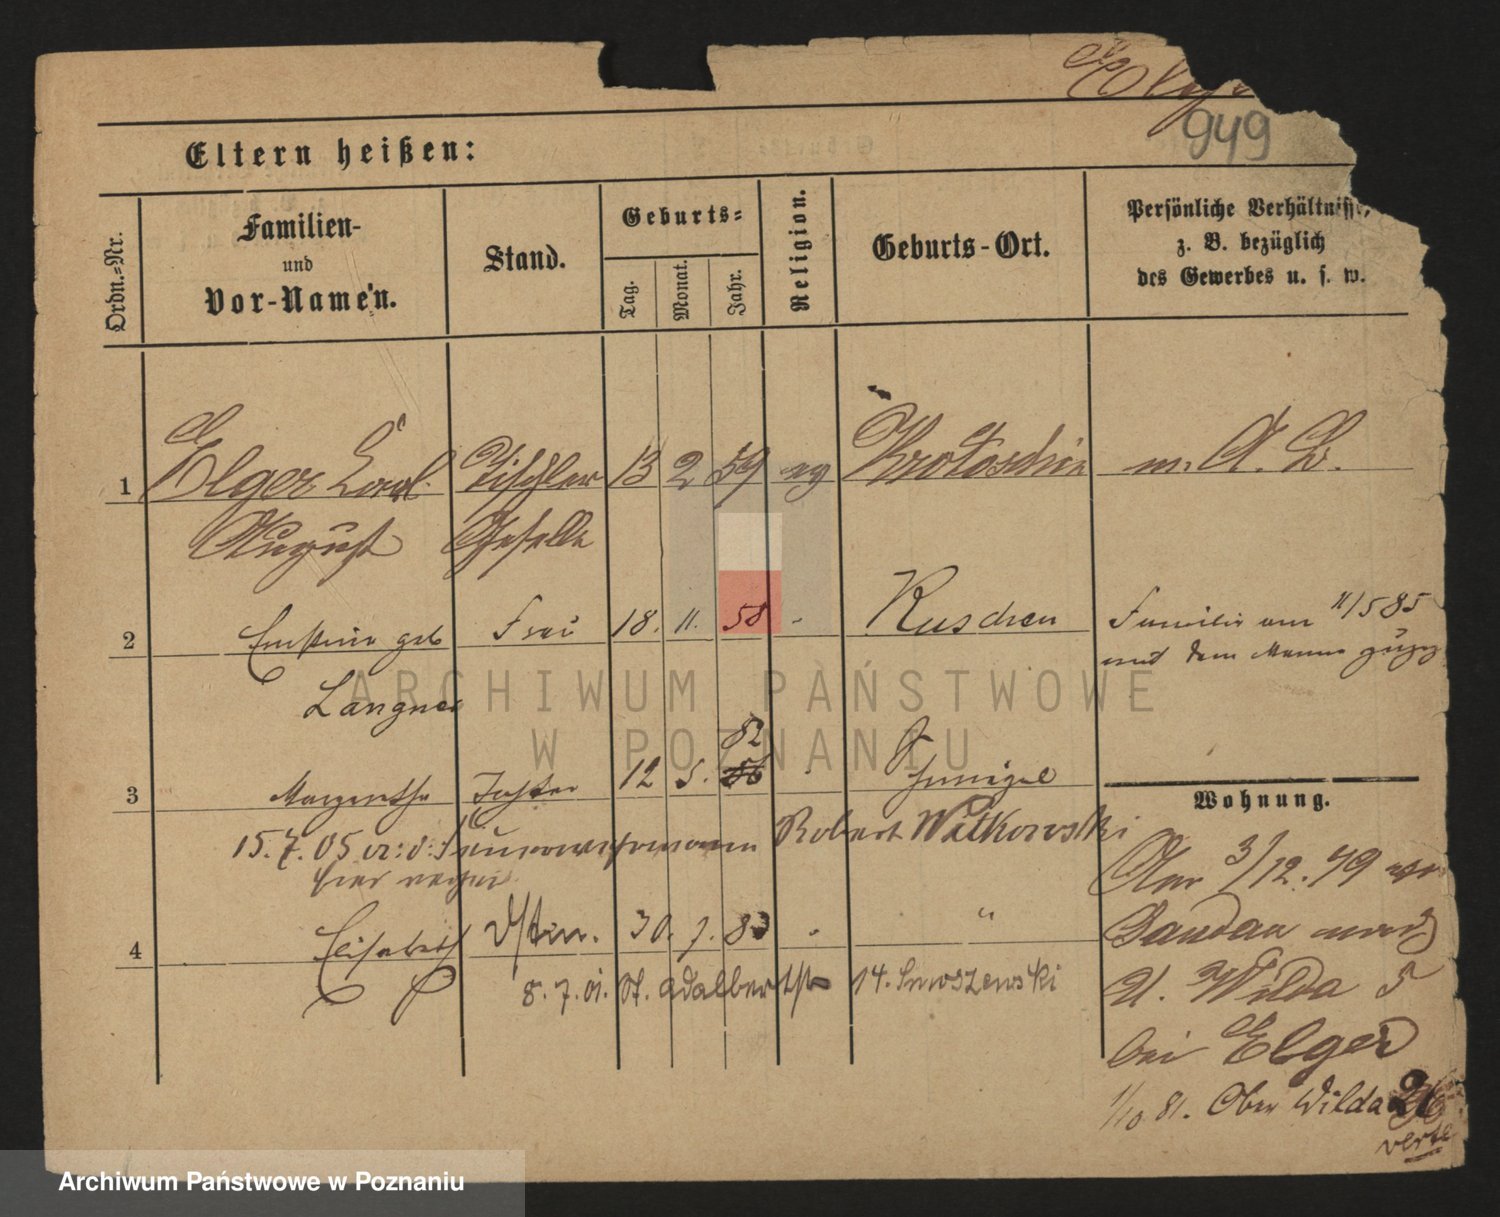 Elge
949
Eltern heißen:
Ordn.=Nr.
Familien-
und
Vor-Namen.
Stand.
Geburts=
Tag.
Monat.
Jahr.
Religion.
Geburts-Ort.
Persönliche Verhältnisse,
z. B. bezüglich
des Gewerbes u. s. w.
1 Elger Carl Tischler 13 2 59 ev Krotoschin m. A. B.
August Geselle
2 Ernstine geb Frau 18. 11. 58 Kuschen Familie am 11/5 85
Langner mit dem Manne
82
3 Margarethe Tochter 12 5. 86
Wohnung.
15.7.05 Robert Witkowski
hier
Am 3/12. 79
4 Elisabeth 30. 7. 83 "
8. 7. 01. St. Adalbertstr 14. Smoszewski
U. Wilda 5
bei Elger
1/10 81. Ober Wilda
verte
ARCHIWUM PAŃSTWOWE
W POZNANIU
Archiwum Państwowe w Poznaniu